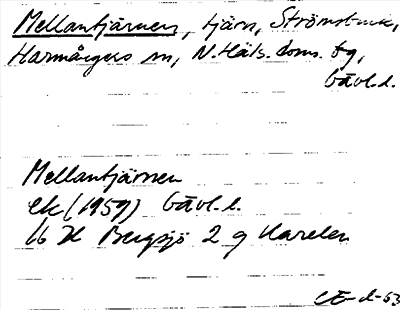 Mellantjärnen, tjärn, Strömsbruk,
Harmångers sn, N. Häls. doms. tg,
Gävl. l.
Mellantjärnen
ek (1959) Gävl. l.
16 H Bergsjö 2 g Karelen